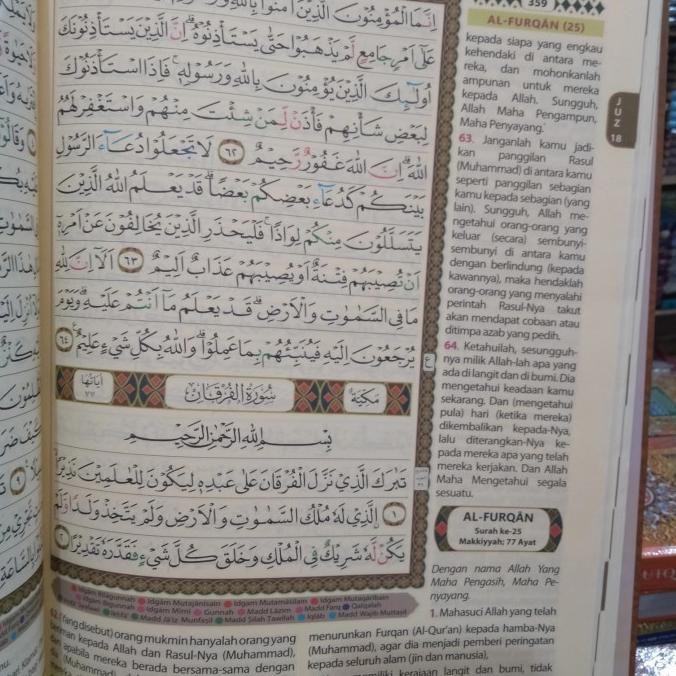 إِنَّمَا الْمُؤْمِنُونَ الَّذِينَ آمَنُوا بِاللَّهِ
عَلَىٰ أَمْرٍ جَامِعٍ لَمْ يَذْهَبُوا حَتَّىٰ يَسْتَأْذِنُوهُ ۚ إِنَّ الَّذِينَ يَسْتَأْذِنُونَكَ
أُولَٰئِكَ الَّذِينَ يُؤْمِنُونَ بِاللَّهِ وَرَسُولِهِ ۚ فَإِذَا اسْتَأْذَنُوكَ
لِبَعْضِ شَأْنِهِمْ فَأْذَنْ لِمَنْ شِئْتَ مِنْهُمْ وَاسْتَغْفِرْ لَهُمُ
اللَّهَ ۚ إِنَّ اللَّهَ غَفُورٌ رَحِيمٌ ﴿٦٢﴾ لَا تَجْعَلُوا دُعَاءَ الرَّسُولِ
بَيْنَكُمْ كَدُعَاءِ بَعْضِكُمْ بَعْضًا ۚ قَدْ يَعْلَمُ اللَّهُ الَّذِينَ
يَتَسَلَّلُونَ مِنْكُمْ لِوَاذًا ۚ فَلْيَحْذَرِ الَّذِينَ يُخَالِفُونَ عَنْ أَمْرِهِ
أَنْ تُصِيبَهُمْ فِتْنَةٌ أَوْ يُصِيبَهُمْ عَذَابٌ أَلِيمٌ ﴿٦٣﴾ أَلَا إِنَّ لِلَّهِ
مَا فِي السَّمَاوَاتِ وَالْأَرْضِ ۖ قَدْ يَعْلَمُ مَا أَنْتُمْ عَلَيْهِ ۗ وَيَوْمَ
يُرْجَعُونَ إِلَيْهِ فَيُنَبِّئُهُمْ بِمَا عَمِلُوا ۗ وَاللَّهُ بِكُلِّ شَيْءٍ عَلِيمٌ ﴿٦٤﴾
مَكِّيَّةٌ سُورَةُ الْفُرْقَانِ آيَاتُهَا ٧٧
بِسْمِ اللَّهِ الرَّحْمَٰنِ الرَّحِيمِ
تَبَارَكَ الَّذِي نَزَّلَ الْفُرْقَانَ عَلَىٰ عَبْدِهِ لِيَكُونَ لِلْعَالَمِينَ نَذِيرًا
﴿١﴾ الَّذِي لَهُ مُلْكُ السَّمَاوَاتِ وَالْأَرْضِ وَلَمْ يَتَّخِذْ وَلَدًا وَلَمْ
يَكُنْ لَهُ شَرِيكٌ فِي الْمُلْكِ وَخَلَقَ كُلَّ شَيْءٍ فَقَدَّرَهُ تَقْدِيرًا ﴿٢﴾
359
AL-FURQĀN (25)
kepada siapa yang engkau
kehendaki di antara me-
reka, dan mohonkanlah
ampunan untuk mereka
kepada Allah. Sungguh,
Allah Maha Pengampun,
Maha Penyayang.
63. Janganlah kamu jadi-
kan panggilan Rasul
(Muhammad) di antara kamu
seperti panggilan sebagian
kamu kepada sebagian (yang
lain). Sungguh, Allah me-
ngetahui orang-orang yang
keluar (secara) sembunyi-
sembunyi di antara kamu
dengan berlindung (kepada
kawannya), maka hendaklah
orang-orang yang menyalahi
perintah Rasul-Nya takut
akan mendapat cobaan atau
ditimpa azab yang pedih.
64. Ketahuilah, sesungguh-
nya milik Allah-lah apa yang
ada di langit dan di bumi. Dia
mengetahui keadaan kamu
sekarang. Dan (mengetahui
pula) hari (ketika mereka)
dikembalikan kepada-Nya,
lalu diterangkan-Nya ke-
pada mereka apa yang telah
mereka kerjakan. Dan Allah
Maha Mengetahui segala
sesuatu.
AL-FURQĀN
Surah ke-25
Makkiyyah: 77 Ayat
Dengan nama Allah Yang
Maha Pengasih, Maha Pe-
nyayang.
1. Mahasuci Allah yang telah
JUZ 18
Idgam Bilagunnah Idgām Mutajānisain Idgam Mutamāṡilain Idgam Mutaqāribain
Idgam Bigunnah Idgām Mimi Gunnah Madd Lāzim Madd Farq Qalqalah
Madd Jā'iz Munfaṣil Madd Silah Tawilah Iqlāb Madd Wajib Muttaṣil
62. (Yang disebut) orang mukmin hanyalah orang yang
beriman kepada Allah dan Rasul-Nya (Muhammad),
apabila mereka berada bersama-sama dengan
menurunkan Furqan (Al-Qur'an) kepada hamba-Nya
(Muhammad), agar dia menjadi pemberi peringatan
kepada seluruh alam (jin dan manusia),
memiliki kerajaan langit dan bumi, tidak